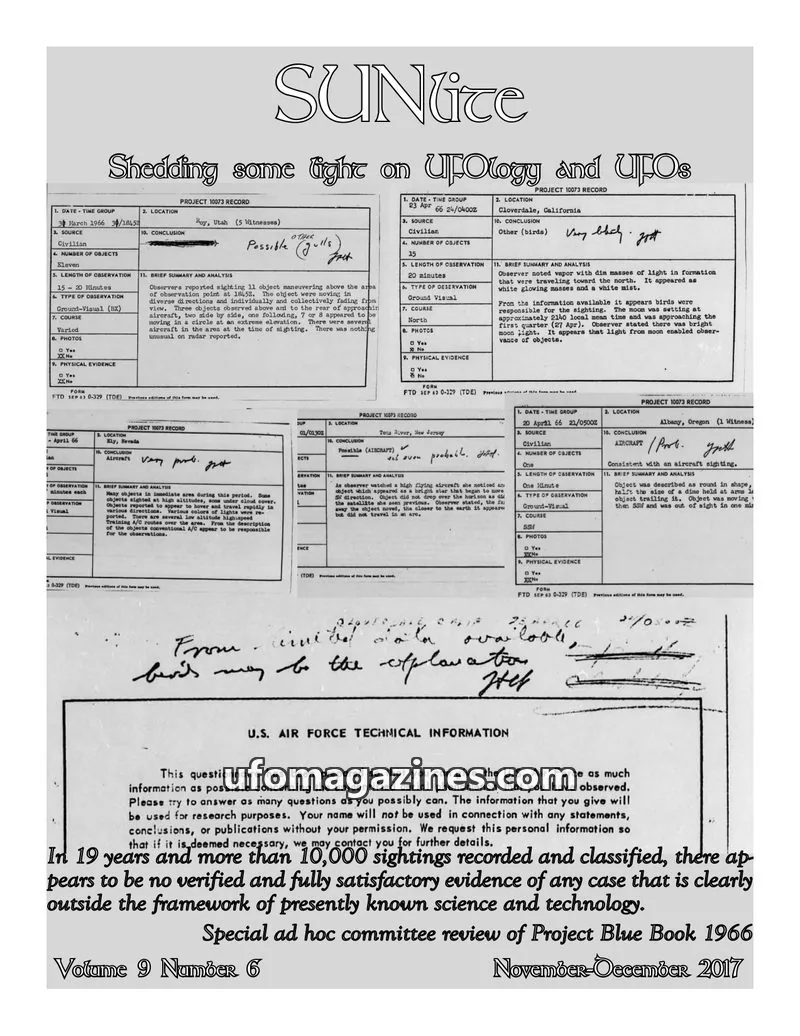 SUNlite
Shedding some light on UFOlogy and UFOs
PROJECT 10073 RECORD
1. DATE - TIME GROUP
March 1966
2. LOCATION
Roy, Utah (5 Witnesses)
3. SOURCE
Civilian
10. CONCLUSION
Possible OTHER (gulls)
JAH
4. NUMBER OF OBJECTS
Eleven
5. LENGTH OF OBSERVATION
15 - 20 Minutes
11. BRIEF SUMMARY AND ANALYSIS
Observers reported sighting 11 object maneuvering above the area
of observation point at 1845Z. The object were moving in
diverse directions and individually and collectively fading from
view. Three objects observed above and to the rear of approachin
aircraft, two side by side, one following, 7 or 8 appeared to be
moving in a circle at an extreme elevation. There were several
aircraft in the area at the time of sighting. There was nothing
unusual on radar reported.
6. TYPE OF OBSERVATION
Ground-Visual (BX)
7. COURSE
Varied
8. PHOTOS
□ Yes
XX No
9. PHYSICAL EVIDENCE
□ Yes
XX No
FORM
FTD SEP 63 0-329 (TDE) Previous editions of this form may be used.
PROJECT 10073 RECORD
1. DATE - TIME GROUP
23 Apr 66 24/0400Z
2. LOCATION
Cloverdale, California
3. SOURCE
Civilian
10. CONCLUSION
Other (birds) Very likely. JAH
4. NUMBER OF OBJECTS
15
5. LENGTH OF OBSERVATION
20 minutes
11. BRIEF SUMMARY AND ANALYSIS
Observer noted vapor with dim masses of light in formation
that were traveling toward the north. It appeared as
white glowing masses and a white mist.
From the information available it appears birds were
responsible for the sighting. The moon was setting at
approximately 2140 local mean time and was approaching the
first quarter (27 Apr). Observer stated there was bright
moon light. It appears that light from moon enabled obser-
vance of objects.
6. TYPE OF OBSERVATION
Ground Visual
7. COURSE
North
8. PHOTOS
□ Yes
No
9. PHYSICAL EVIDENCE
□ Yes
No
FORM
FTD SEP 63 0-329 (TDE) Previous editions of this form may be used.
PROJECT 10073 RECORD
TIME GROUP
- April 66
2. LOCATION
Ely, Nevada
10. CONCLUSION
Aircraft Very prob. JAH
OF OBJECTS
OF OBSERVATION
minutes each
11. BRIEF SUMMARY AND ANALYSIS
Many objects in immediate area during this period. Some
objects sighted at high altitudes, some under cloud cover.
Objects reported to appear to hover and travel rapidly in
various directions. Various colors of lights were re-
ported. There are several low altitude high-speed
Training A/C routes over the area. From the description
of the objects conventional A/C appear to be responsible
for the observations.
OBSERVATION
Visual
EVIDENCE
0-329 (TDE) Previous editions of this form may be used.
PROJECT 10073 RECORD
01/0130Z
2. LOCATION
Toms River, New Jersey
10. CONCLUSION
Possible (AIRCRAFT) not even probable. JAH
11. BRIEF SUMMARY AND ANALYSIS
As observer watched a high flying aircraft she noticed an
object which appeared as a bright star that began to move
SW direction. Object did not drop over the horizon as did
the satellite she seen previous. Observer stated, the fur
away the object moved, the closer to the earth it appeare
but did not travel in an arc.
(TDE) Previous editions of this form may be used.
PROJECT 10073 RECORD
1. DATE - TIME GROUP
20 April 66 21/0500Z
2. LOCATION
Albany, Oregon (1 Witness)
3. SOURCE
Civilian
10. CONCLUSION
AIRCRAFT / Prob. JAH
Consistent with an aircraft sighting.
4. NUMBER OF OBJECTS
One
5. LENGTH OF OBSERVATION
One Minute
11. BRIEF SUMMARY AND ANALYSIS
Object was described as round in shape,
half the size of a dime held at arms l
object trailing it. Object was moving
then SSW and was out of sight in one min
6. TYPE OF OBSERVATION
Ground-Visual
7. COURSE
SSW
8. PHOTOS
□ Yes
XX No
9. PHYSICAL EVIDENCE
□ Yes
XX No
FORM
FTD SEP 63 0-329 (TDE) Previous editions of this form may be used.
From limited data available,
birds may be the explanation
JAH
U.S. AIR FORCE TECHNICAL INFORMATION
This questi as much
information as pos observed.
Please try to answer as many questions as you possibly can. The information that you give will
be used for research purposes. Your name will not be used in connection with any statements,
conclusions, or publications without your permission. We request this personal information so
that if it is deemed necessary, we may contact you for further details.
ufomagazines.com
In 19 years and more than 10,000 sightings recorded and classified, there ap-
pears to be no verified and fully satisfactory evidence of any case that is clearly
outside the framework of presently known science and technology.
Special ad hoc committee review of Project Blue Book 1966
Volume 9 Number 6
November-December 2017